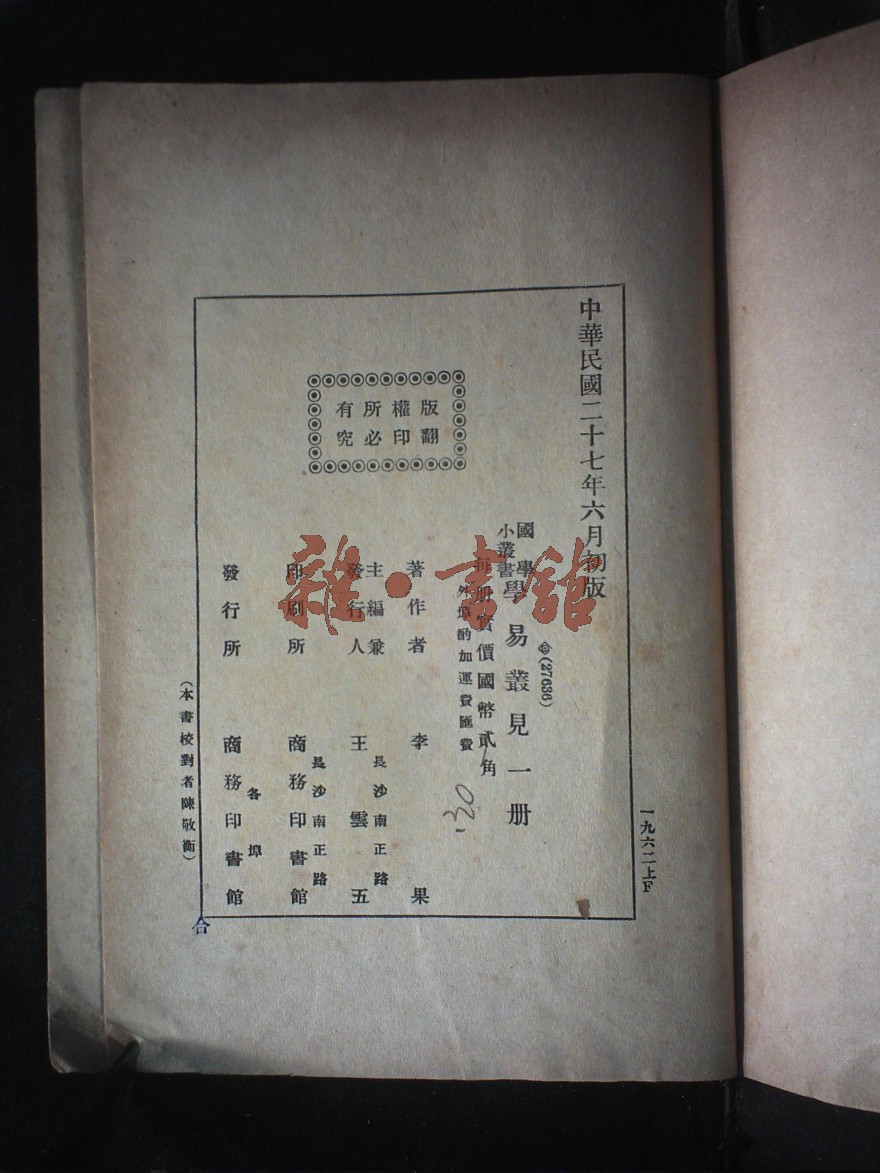 中華民國二十七年六月初版
版權所有
翻印必究
(27636)
國學
小叢書
學易叢見一册
每册實價國幣貳角
外埠酌加運費匯費
.30
著作者 李果
主編兼
發行人
長沙南正路
王雲五
印刷所
長沙南正路
商務印書館
發行所
各埠
商務印書館
(本書校對者陳敬衡)
一九六二上F
合
雜·書館